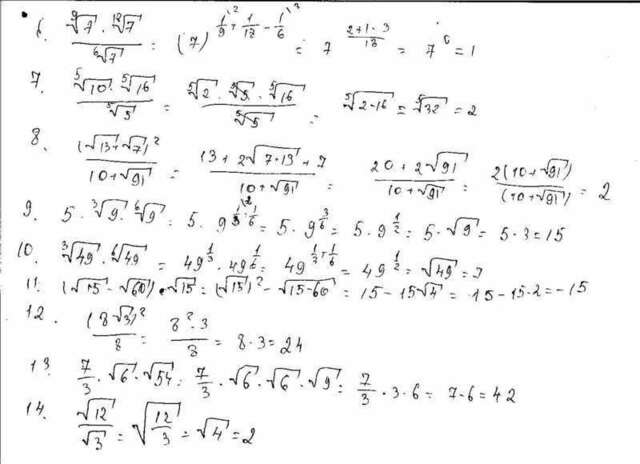 6. \frac{\sqrt[9]{7} \cdot \sqrt[18]{7}}{\sqrt[6]{7}} = (7)^{\frac{1}{9}^{\backslash 2} + \frac{1}{18} - \frac{1}{6}^{\backslash 3}} = 7^{\frac{2+1-3}{18}} = 7^0 = 1
7. \frac{\sqrt[5]{10} \cdot \sqrt[5]{16}}{\sqrt[5]{5}} = \frac{\sqrt[5]{2} \cdot \sqrt[5]{5} \cdot \sqrt[5]{16}}{\sqrt[5]{5}} = \sqrt[5]{2 \cdot 16} = \sqrt[5]{32} = 2
8. \frac{(\sqrt{13}+\sqrt{7})^2}{10+\sqrt{91}} = \frac{13+2\sqrt{7 \cdot 13}+7}{10+\sqrt{91}} = \frac{20+2\sqrt{91}}{10+\sqrt{91}} = \frac{2(10+\sqrt{91})}{(10+\sqrt{91})} = 2
9. 5 \cdot \sqrt[3]{9} \cdot \sqrt[6]{9} = 5 \cdot 9^{\frac{1}{3}^{\backslash 2} + \frac{1}{6}} = 5 \cdot 9^{\frac{3}{6}} = 5 \cdot 9^{\frac{1}{2}} = 5 \cdot \sqrt{9} = 5 \cdot 3 = 15
10. \sqrt[3]{49} \cdot \sqrt[6]{49} = 49^{\frac{1}{3}} \cdot 49^{\frac{1}{6}} = 49^{\frac{1}{3}+\frac{1}{6}} = 49^{\frac{1}{2}} = \sqrt{49} = 7
11. (\sqrt{15} - \sqrt{60}) \cdot \sqrt{15} = (\sqrt{15})^2 - \sqrt{15 \cdot 60} = 15 - 15\sqrt{4} = 15 - 15 \cdot 2 = -15
12. \frac{(8\sqrt{3})^2}{8} = \frac{8^2 \cdot 3}{8} = 8 \cdot 3 = 24
13. \frac{7}{3} \cdot \sqrt{6} \cdot \sqrt{54} = \frac{7}{3} \cdot \sqrt{6} \cdot \sqrt{6} \cdot \sqrt{9} = \frac{7}{3} \cdot 3 \cdot 6 = 7 \cdot 6 = 42
14. \frac{\sqrt{12}}{\sqrt{3}} = \sqrt{\frac{12}{3}} = \sqrt{4} = 2